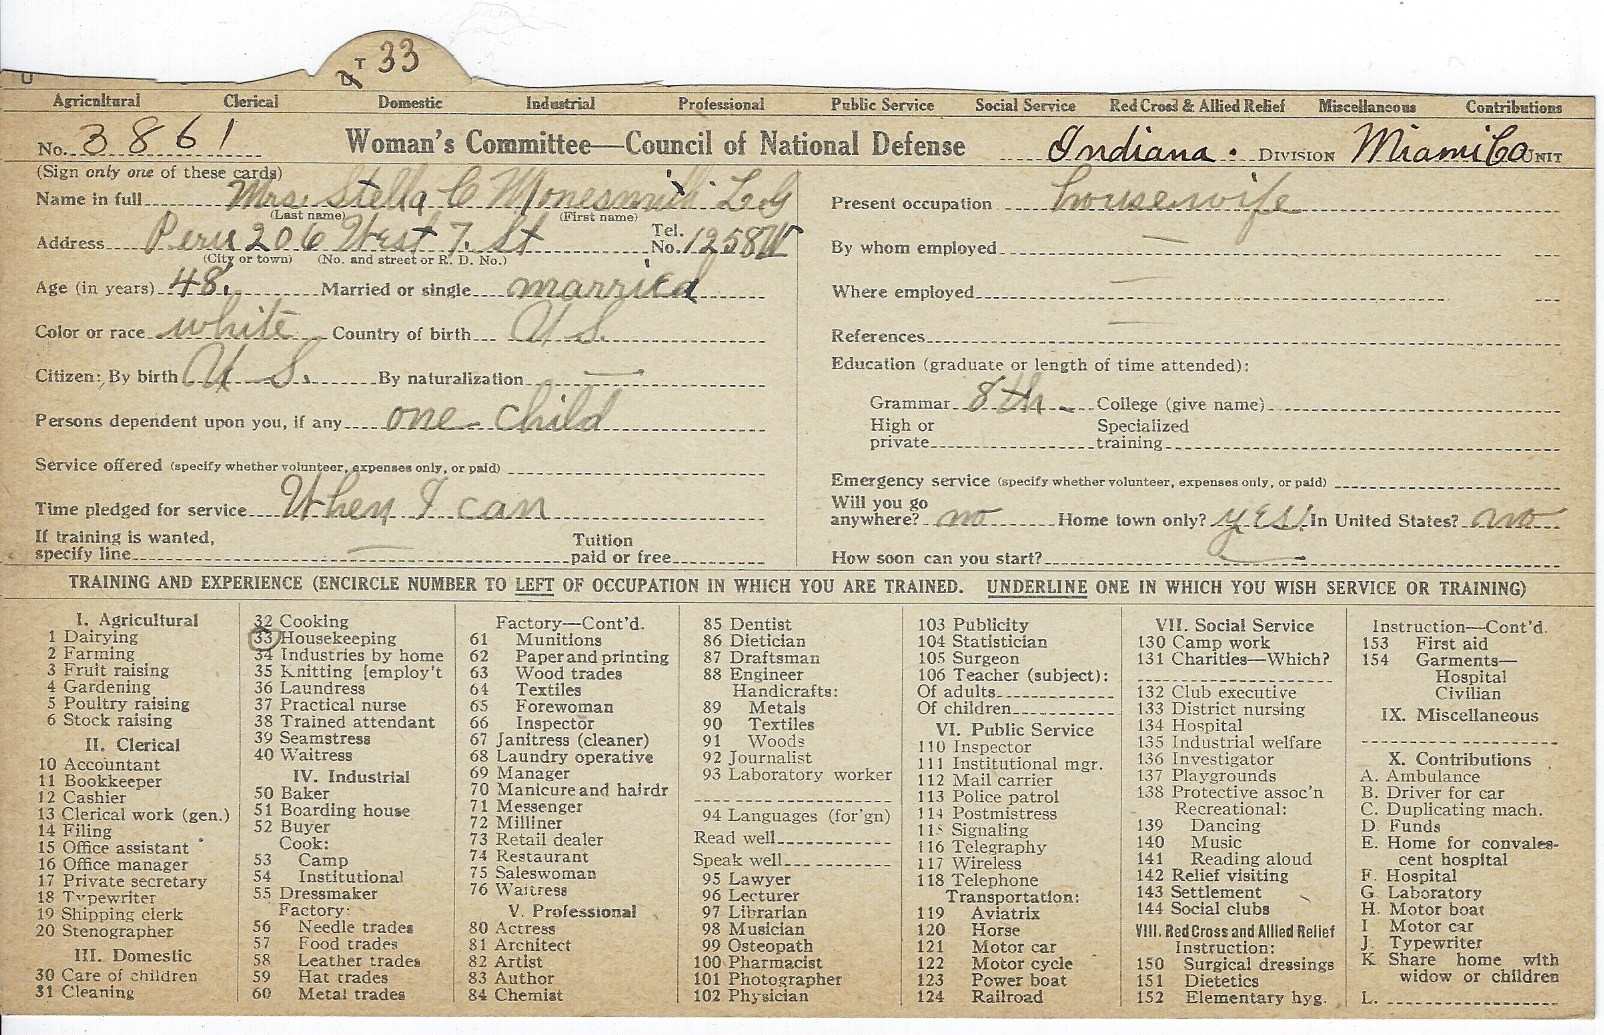 T 33
Agricultural Clerical Domestic Industrial Professional Public Service Social Service Red Cross & Allied Relief Miscellaneous Contributions
No. 3861 Woman's Committee—Council of National Defense Indiana. DIVISION Miami Co UNIT
(Sign only one of these cards)
Name in full Mrs. Stella C Monesmith
(Last name) (First name)
Address Peru 206 West 7. St Tel. No. 1258W
(City or town) (No. and street or R. D. No.)
Age (in years) 48. Married or single married
Color or race white Country of birth U S.
Citizen: By birth U S. By naturalization —
Persons dependent upon you, if any one child
Service offered (specify whether volunteer, expenses only, or paid)
Time pledged for service When I can
If training is wanted,
specify line — Tuition paid or free
Present occupation housewife
By whom employed —
Where employed —
References —
Education (graduate or length of time attended):
Grammar 8th College (give name)
High or private Specialized training
Emergency service (specify whether volunteer, expenses only, or paid)
Will you go
anywhere? no Home town only? yes. In United States? no
How soon can you start?
TRAINING AND EXPERIENCE (ENCIRCLE NUMBER TO LEFT OF OCCUPATION IN WHICH YOU ARE TRAINED. UNDERLINE ONE IN WHICH YOU WISH SERVICE OR TRAINING)
I. Agricultural
1 Dairying
2 Farming
3 Fruit raising
4 Gardening
5 Poultry raising
6 Stock raising
II. Clerical
10 Accountant
11 Bookkeeper
12 Cashier
13 Clerical work (gen.)
14 Filing
15 Office assistant
16 Office manager
17 Private secretary
18 Typewriter
19 Shipping clerk
20 Stenographer
III. Domestic
30 Care of children
31 Cleaning
32 Cooking
33 Housekeeping
34 Industries by home
35 Knitting [employ't
36 Laundress
37 Practical nurse
38 Trained attendant
39 Seamstress
40 Waitress
IV. Industrial
50 Baker
51 Boarding house
52 Buyer
Cook:
53 Camp
54 Institutional
55 Dressmaker
Factory:
56 Needle trades
57 Food trades
58 Leather trades
59 Hat trades
60 Metal trades
Factory—Cont'd.
61 Munitions
62 Paper and printing
63 Wood trades
64 Textiles
65 Forewoman
66 Inspector
67 Janitress (cleaner)
68 Laundry operative
69 Manager
70 Manicure and hairdr
71 Messenger
72 Milliner
73 Retail dealer
74 Restaurant
75 Saleswoman
76 Waitress
V. Professional
80 Actress
81 Architect
82 Artist
83 Author
84 Chemist
85 Dentist
86 Dietician
87 Draftsman
88 Engineer
Handicrafts:
89 Metals
90 Textiles
91 Woods
92 Journalist
93 Laboratory worker
94 Languages (for'gn)
Read well
Speak well
95 Lawyer
96 Lecturer
97 Librarian
98 Musician
99 Osteopath
100 Pharmacist
101 Photographer
102 Physician
103 Publicity
104 Statistician
105 Surgeon
106 Teacher (subject):
Of adults
Of children
VI. Public Service
110 Inspector
111 Institutional mgr.
112 Mail carrier
113 Police patrol
114 Postmistress
115 Signaling
116 Telegraphy
117 Wireless
118 Telephone
Transportation:
119 Aviatrix
120 Horse
121 Motor car
122 Motor cycle
123 Power boat
124 Railroad
VII. Social Service
130 Camp work
131 Charities—Which?
132 Club executive
133 District nursing
134 Hospital
135 Industrial welfare
136 Investigator
137 Playgrounds
138 Protective assoc'n
Recreational:
139 Dancing
140 Music
141 Reading aloud
142 Relief visiting
143 Settlement
144 Social clubs
VIII. Red Cross and Allied Relief
Instruction:
150 Surgical dressings
151 Dietetics
152 Elementary hyg.
Instruction—Cont'd.
153 First aid
154 Garments—
Hospital
Civilian
IX. Miscellaneous
X. Contributions
A. Ambulance
B. Driver for car
C. Duplicating mach.
D. Funds
E. Home for convales-
cent hospital
F. Hospital
G. Laboratory
H. Motor boat
I Motor car
J. Typewriter
K Share home with
widow or children
L.